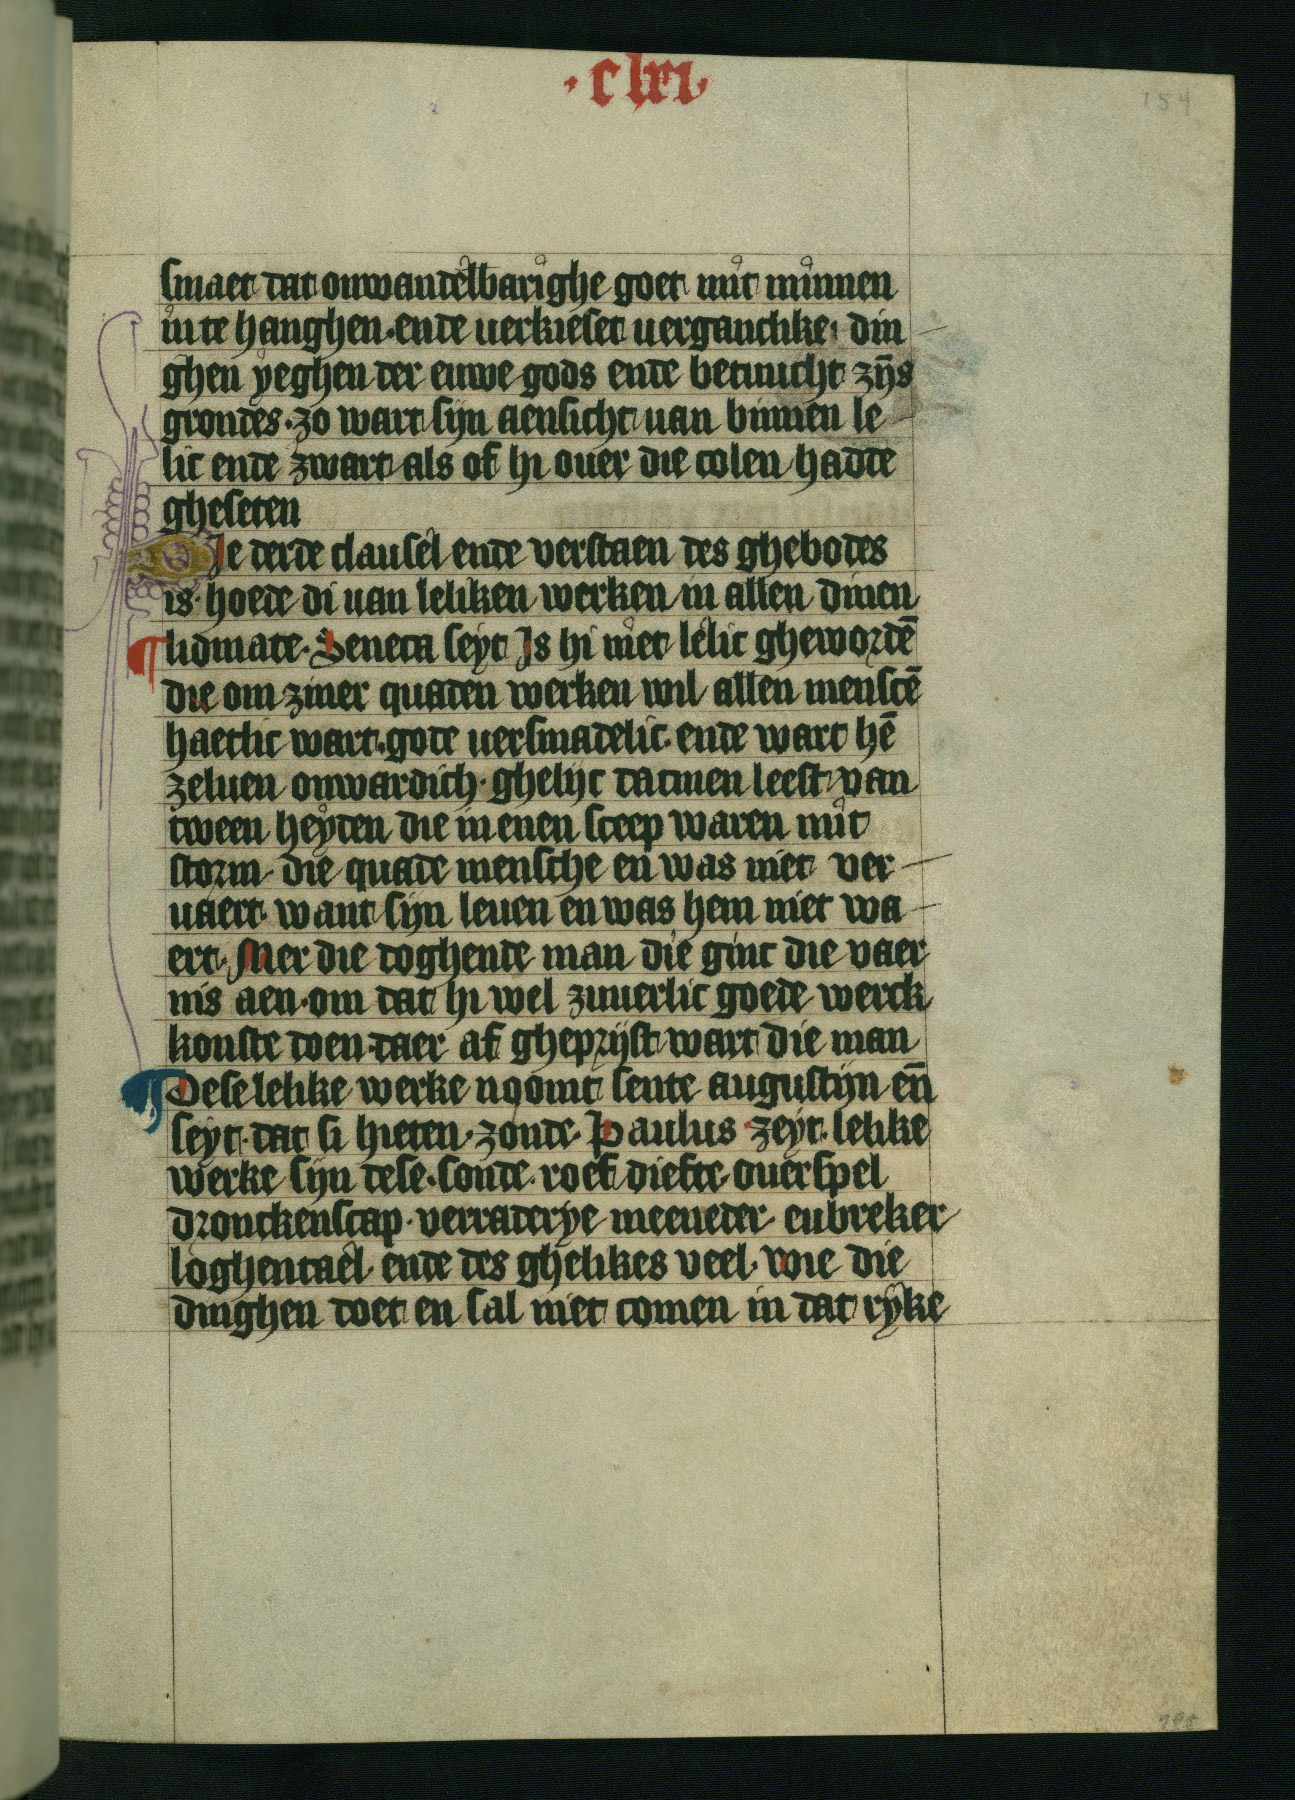 · c lxi ·
154
smaet dat onwandelbarighe goet mit minnen
in te hanghen · ende uerkieset uerganclike din
ghen yeghen der euwe gods ende betuucht zijs
grondes · zo wart sijn aensicht uan binnen le
lic ende zwart als of hi ouer die colen hadde
gheseten
Die derde clausel ende verstaen des ghebodes
is · hoede di uan leliken werken in allen dinen
¶ lidmate · Seneca seyt Is hi niet lelic ghewordē
die om ziner quaden werken wil allen menscē
haetlic wart · gode uersmadelic · ende wart hē
zeluen onwardich · ghelijc datmen leest van
tween heyden die in enen sceep waren mit
storm · die quade mensche en was niet ver
uaert · want sijn leuen en was hem niet wa
ert · Mer die doghende man die ginc die vaer
nis aen · om dat hi wel zuuerlic goede werck
konste doen · daer af gheprijst wart die man
¶ Dese lelike werke noomt sente augustijn eñ
seyt · dat si hieten · zonde · Paulus zeyt · lelike
werke sijn dese · sonde · roef · diefte · ouerspel
dronckenscap · verraderye meeneder eubreker
loghentael · ende des ghelikes veel · wie die
dinghen doet en sal niet comen in dat ryke